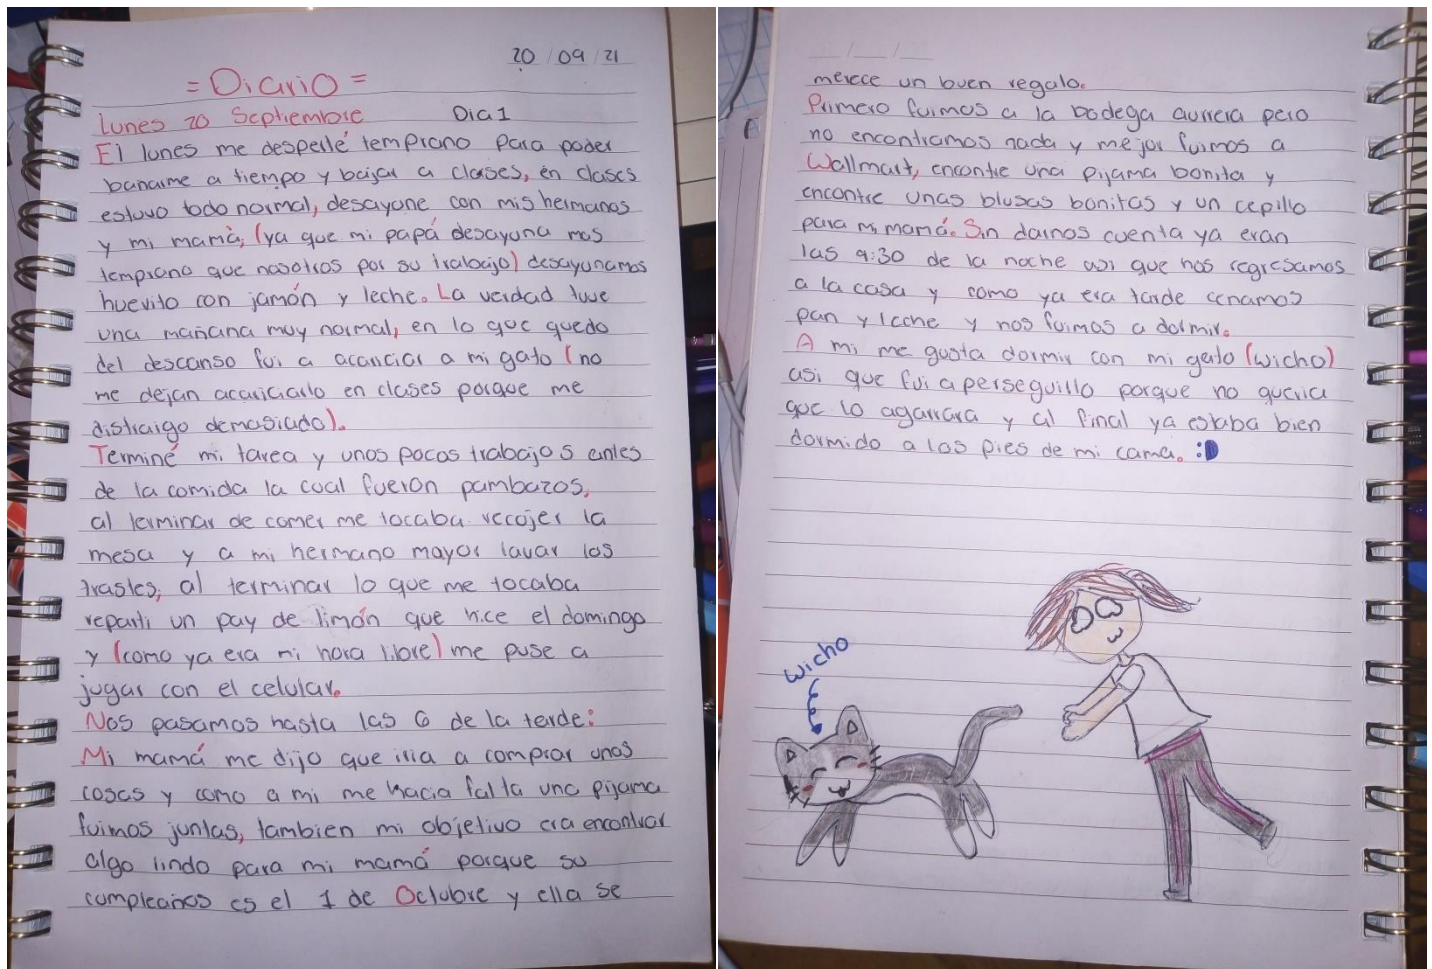 20/09/21
=Diario=
Lunes 20 Septiembre Dia 1
El lunes me desperté temprano para poder
bañarme a tiempo y bajar a clases, en clases
estuvo todo normal, desayune con mis hermanos
y mi mamá, (ya que mi papá desayuna mas
temprano que nosotros por su trabajo) desayunamos
huevito con jamón y leche. La verdad tuve
una mañana muy normal, en lo que quedo
del descanso fui a acariciar a mi gato (no
me dejan acariciarlo en clases porque me
distraigo demasiado).
Terminé mi tarea y unos pocos trabajos antes
de la comida la cual fueron pambazos,
al terminar de comer me tocaba recojer la
mesa y a mi hermano mayor lavar los
trastes, al terminar lo que me tocaba
reparti un pay de limón que hice el domingo
y (como ya era mi hora libre) me puse a
jugar con el celular.
Nos pasamos hasta las 6 de la tarde:
Mi mamá me dijo que iria a comprar unas
cosas y como a mi me hacia falta una pijama
fuimos juntas, tambien mi objetivo era encontrar
algo lindo para mi mamá porque su
cumpleaños es el 1 de Octubre y ella se
merece un buen regalo.
Primero fuimos a la bodega aurrera pero
no encontramos nada y mejor fuimos a
Wallmart, encontre una pijama bonita y
encontre unas blusas bonitas y un cepillo
para mi mamá. Sin darnos cuenta ya eran
las 9:30 de la noche asi que nos regresamos
a la casa y como ya era tarde cenamos
pan y leche y nos fuimos a dormir.
A mi me gusta dormir con mi gato (wicho)
asi que fui a perseguirlo porque no queria
que lo agarrara y al final ya estaba bien
dormido a los pies de mi cama. :D
wicho